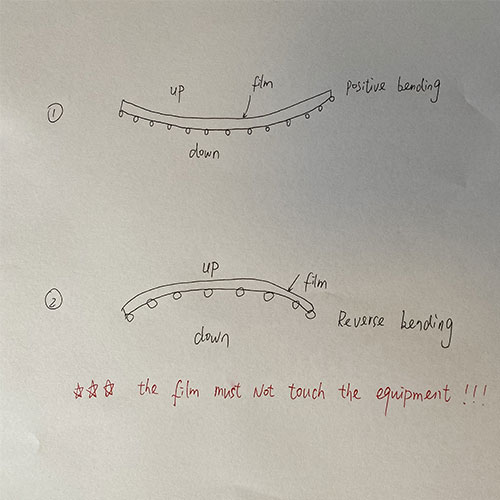 up
film
positive bending
①
down
up
film
②
Reverse bending
down
☆☆☆ the film must Not touch the equipment !!!